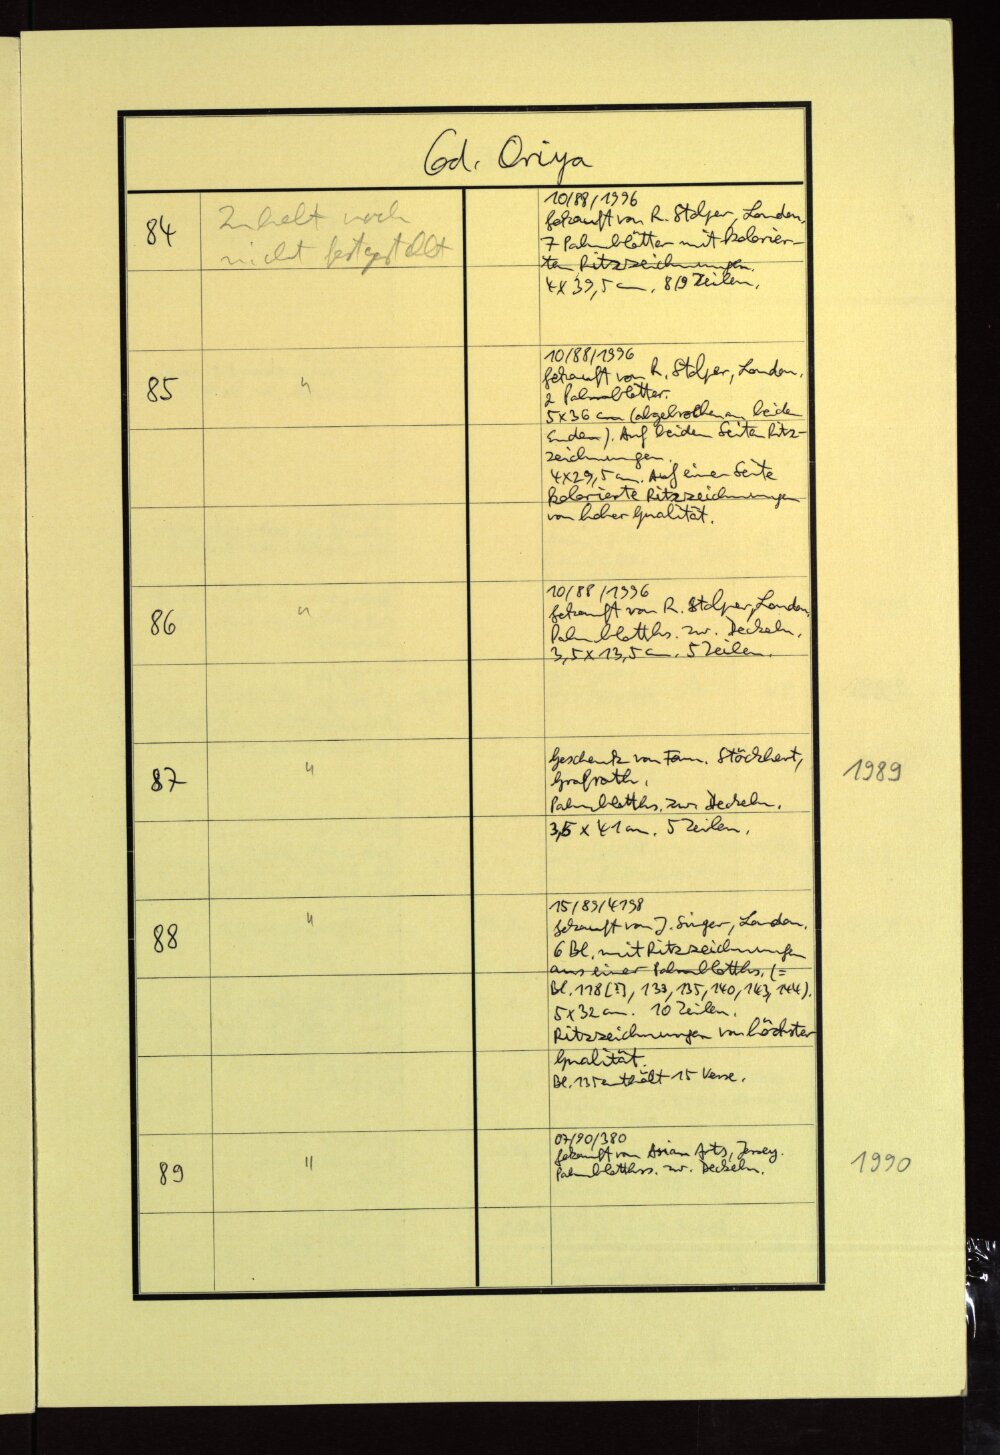 Cod. Oriya
84
Inhalt noch
nicht festgestellt
10/88/1996
Gekauft von R. Stolper, London.
7 Palmblätter mit kolorier-
ten Ritzzeichnungen.
4 x 39,5 cm. 8/9 Zeilen.
85
"
10/88/1996
Gekauft von R. Stolper, London.
2 Palmblätter.
5 x 36 cm (abgebrochen an beiden
Enden). Auf beiden Seiten Ritz-
zeichnungen.
4 x 29,5 cm. Auf einer Seite
kolorierte Ritzzeichnungen
von hoher Qualität.
86
"
10/88/1996
Gekauft von R. Stolper, London.
Palmblatths. zw. Deckeln.
3,5 x 13,5 cm. 5 Zeilen.
87
"
Geschenk von Fam. Stöckhert,
Grafrath.
Palmblatths. zw. Deckeln.
3,5 x 41 cm. 5 Zeilen.
1989
88
"
15/89/4198
Gekauft von J. Singer, London.
6 Bl. mit Ritzzeichnungen
aus einer Palmblatths. (=
Bl. 118[?], 133, 135, 140, 143, 144).
5 x 32 cm. 10 Zeilen.
Ritzzeichnungen von höchster
Qualität.
Bl. 135 enthält 15 Verse.
89
"
07/90/380
Gekauft von Asian Arts, Jersey.
Palmblatths. zw. Deckeln.
1990